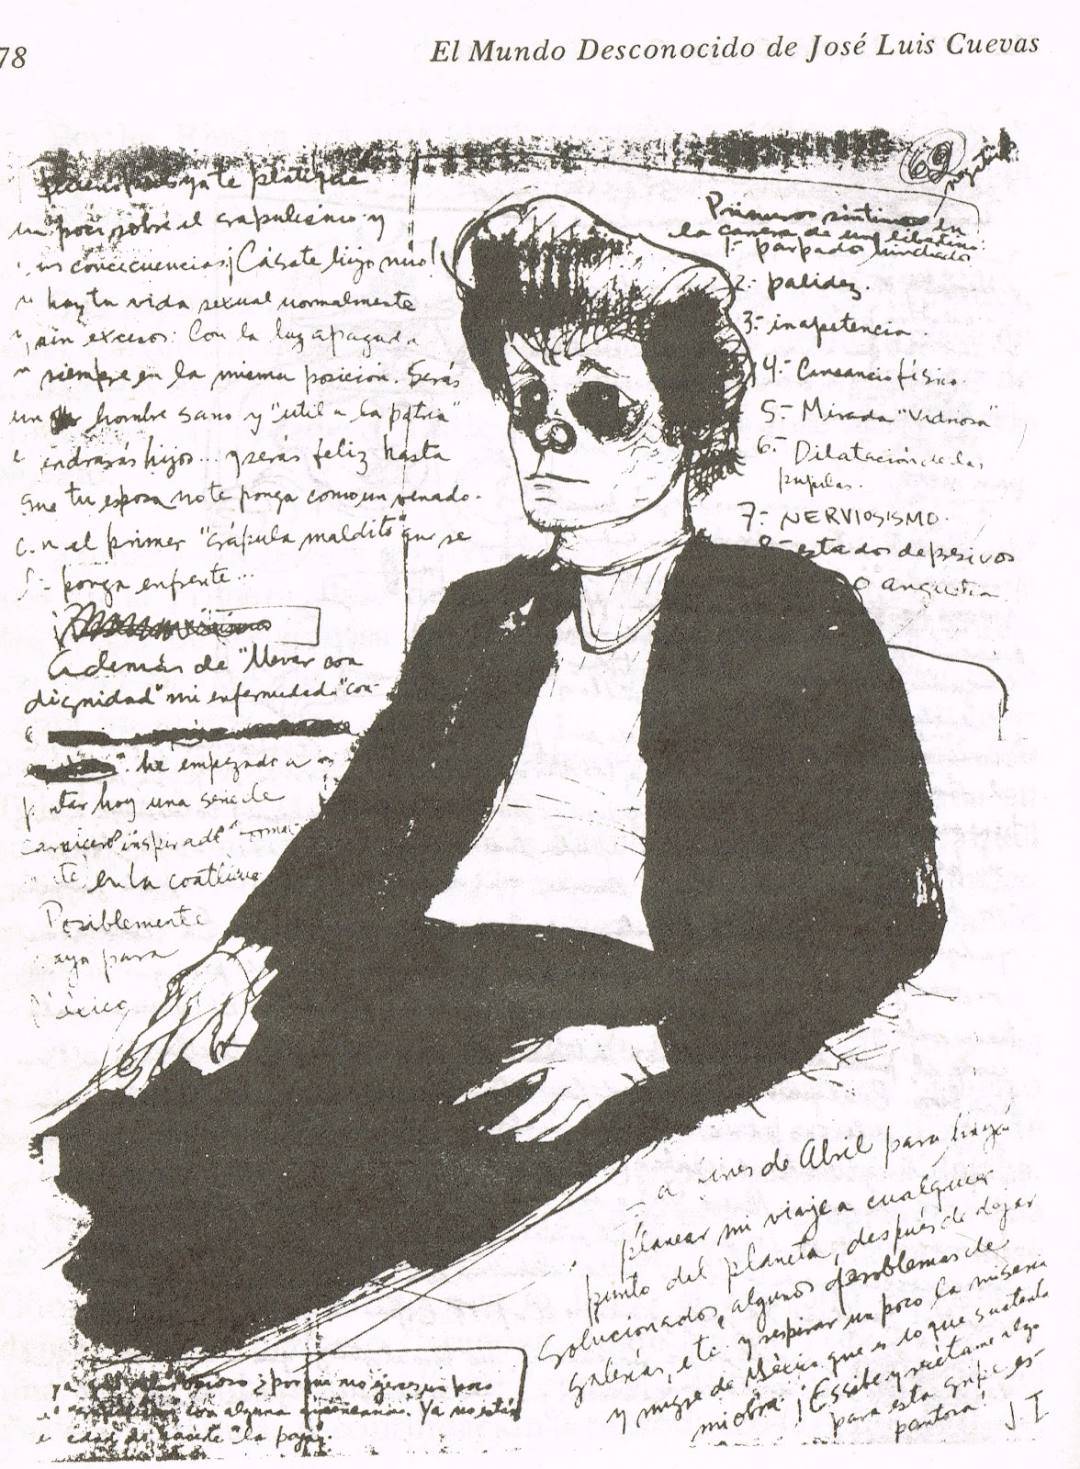 78
El Mundo Desconocido de José Luis Cuevas
69
ya te platiqué
un poco sobre el crapulismo y
consecuencias ¡Cásate hijo mío!
haz tu vida sexual normalmente
sin excesos: Con la luz apagada
siempre en la misma posición. Serás
un hombre sano y "útil a la patria"
tendrás hijos... y serás feliz hasta
que tu esposa no te ponga como un venado.
con el primer "crápula maldito" que se
ponga enfrente...
Además de "llevar con
dignidad" mi enfermedad "con-
he empezado a
pintar hoy una serie de
en la
Posiblemente
para
México
Primeros síntomas en
la carrera de un libertino:
1- parpados hinchados
2- palidez.
3- inapetencia.
4- Cansancio físico.
5- Mirada "Vidriosa"
6- Dilatación de las
pupilas.
7- NERVIOSISMO.
8- estados depresivos
o angustia
a fines de Abril para
planear mi viaje a cualquier
punto del planeta, después de dejar
solucionados algunos problemas de
galerías, etc. y respirar un poco la miseria
y mugre de México que es lo que sustenta
mi obra ¡Escribe y algo
para esta gripe es-
pantosa!
¿por qué no
con alguna Ya no estás
edad de hacerte "la paja".